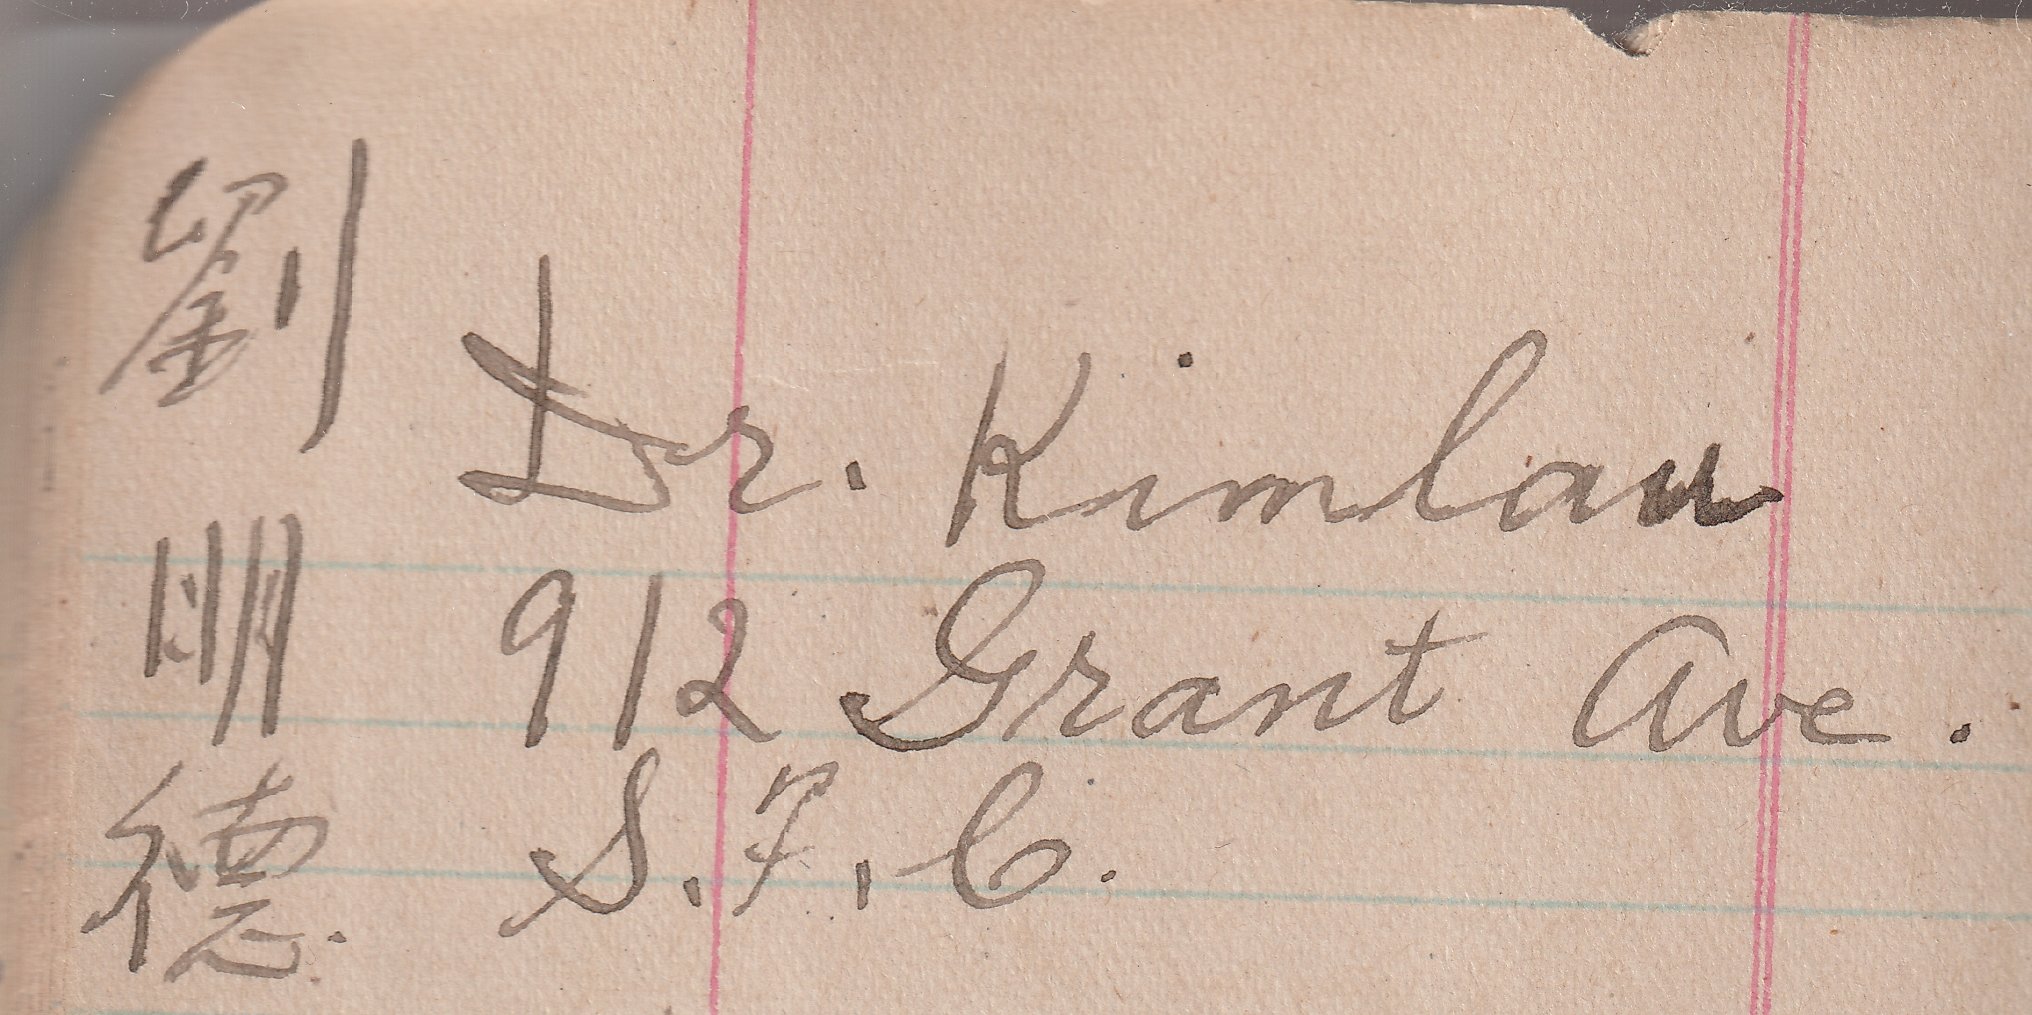 劉明德
Dr. Kimlau
912 Grant Ave.
S.F.C.